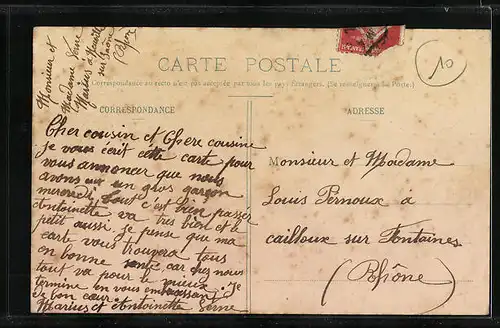 Monsieur et
Madame Serne
Marius à Neuville
sur Saône
(Rhône)
10
CARTE POSTALE
Correspondance au recto n'est pas acceptée par tous les pays étrangers. (Se renseigner à la Poste.)
CORRESPONDANCE
ADRESSE
Cher cousin et Chere cousine
je vous écrit cette carte pour
vous annoncer que nous
avons eu un gros garçon
mercredi, tout c'est bien passer
Antoinette va tres bien et le
petit aussi. je pense que ma
carte vous trouvera tous
en bonne santé, car chez nous
tout va pour le mieux. Je
termine en vous embrassant
de bon cœur.
Marius et Antoinette Serne
Monsieur et Madame
Louis Pernoux à
cailloux sur Fontaines
(Rhône)